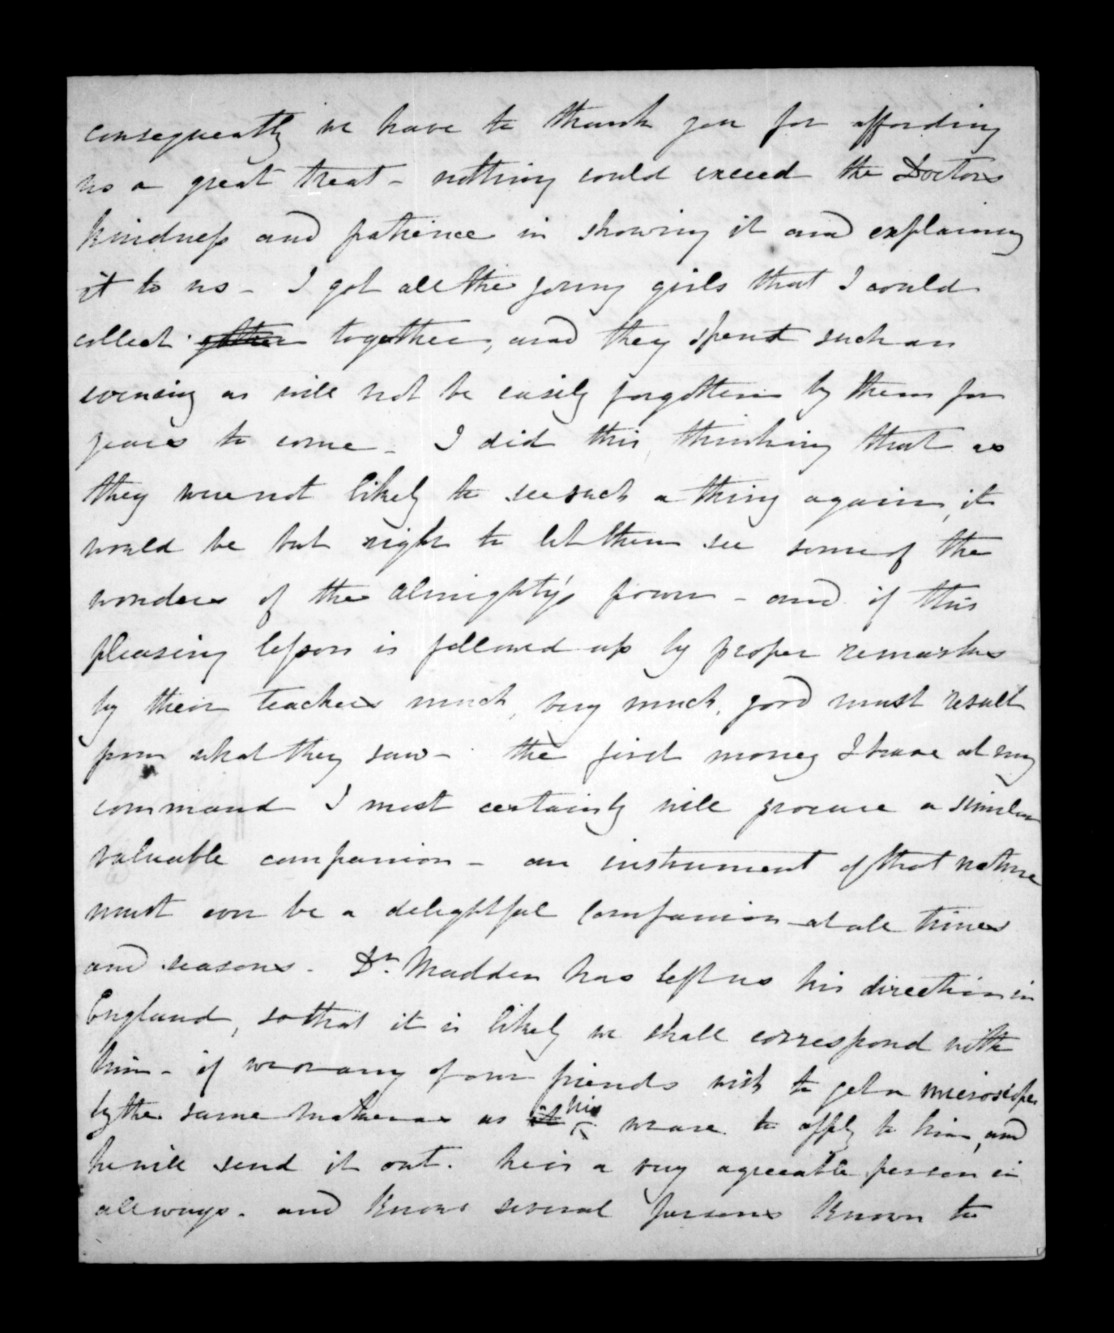 consequently we have to thank you for affording
us a great treat - nothing could exceed the Doctors
kindness and patience in showing it and explaining
it to us - I got all the young girls that I could
collect together, and they spent such an
evening as will not be easily forgotten by them for
years to come - I did this thinking that as
they were not likely to see such a thing again, it
would be but right to let them see some of the
wonders of the almighty's power - and if this
pleasing lesson is followed up by proper remarks
by their teachers much, very much, good must result
from what they saw - the first money I have at my
command I most certainly will procure a similar
valuable companion - an instrument of that nature
must ever be a delightful companion at all times
and seasons. Dr. Madden has left us his direction in
England, so that it is likely we shall correspond with
him - if we or any of our friends wish to get a microscope
by the same maker as his we are to apply to him, and
he will send it out. he is a very agreeable person in
all ways. and knows several persons known to